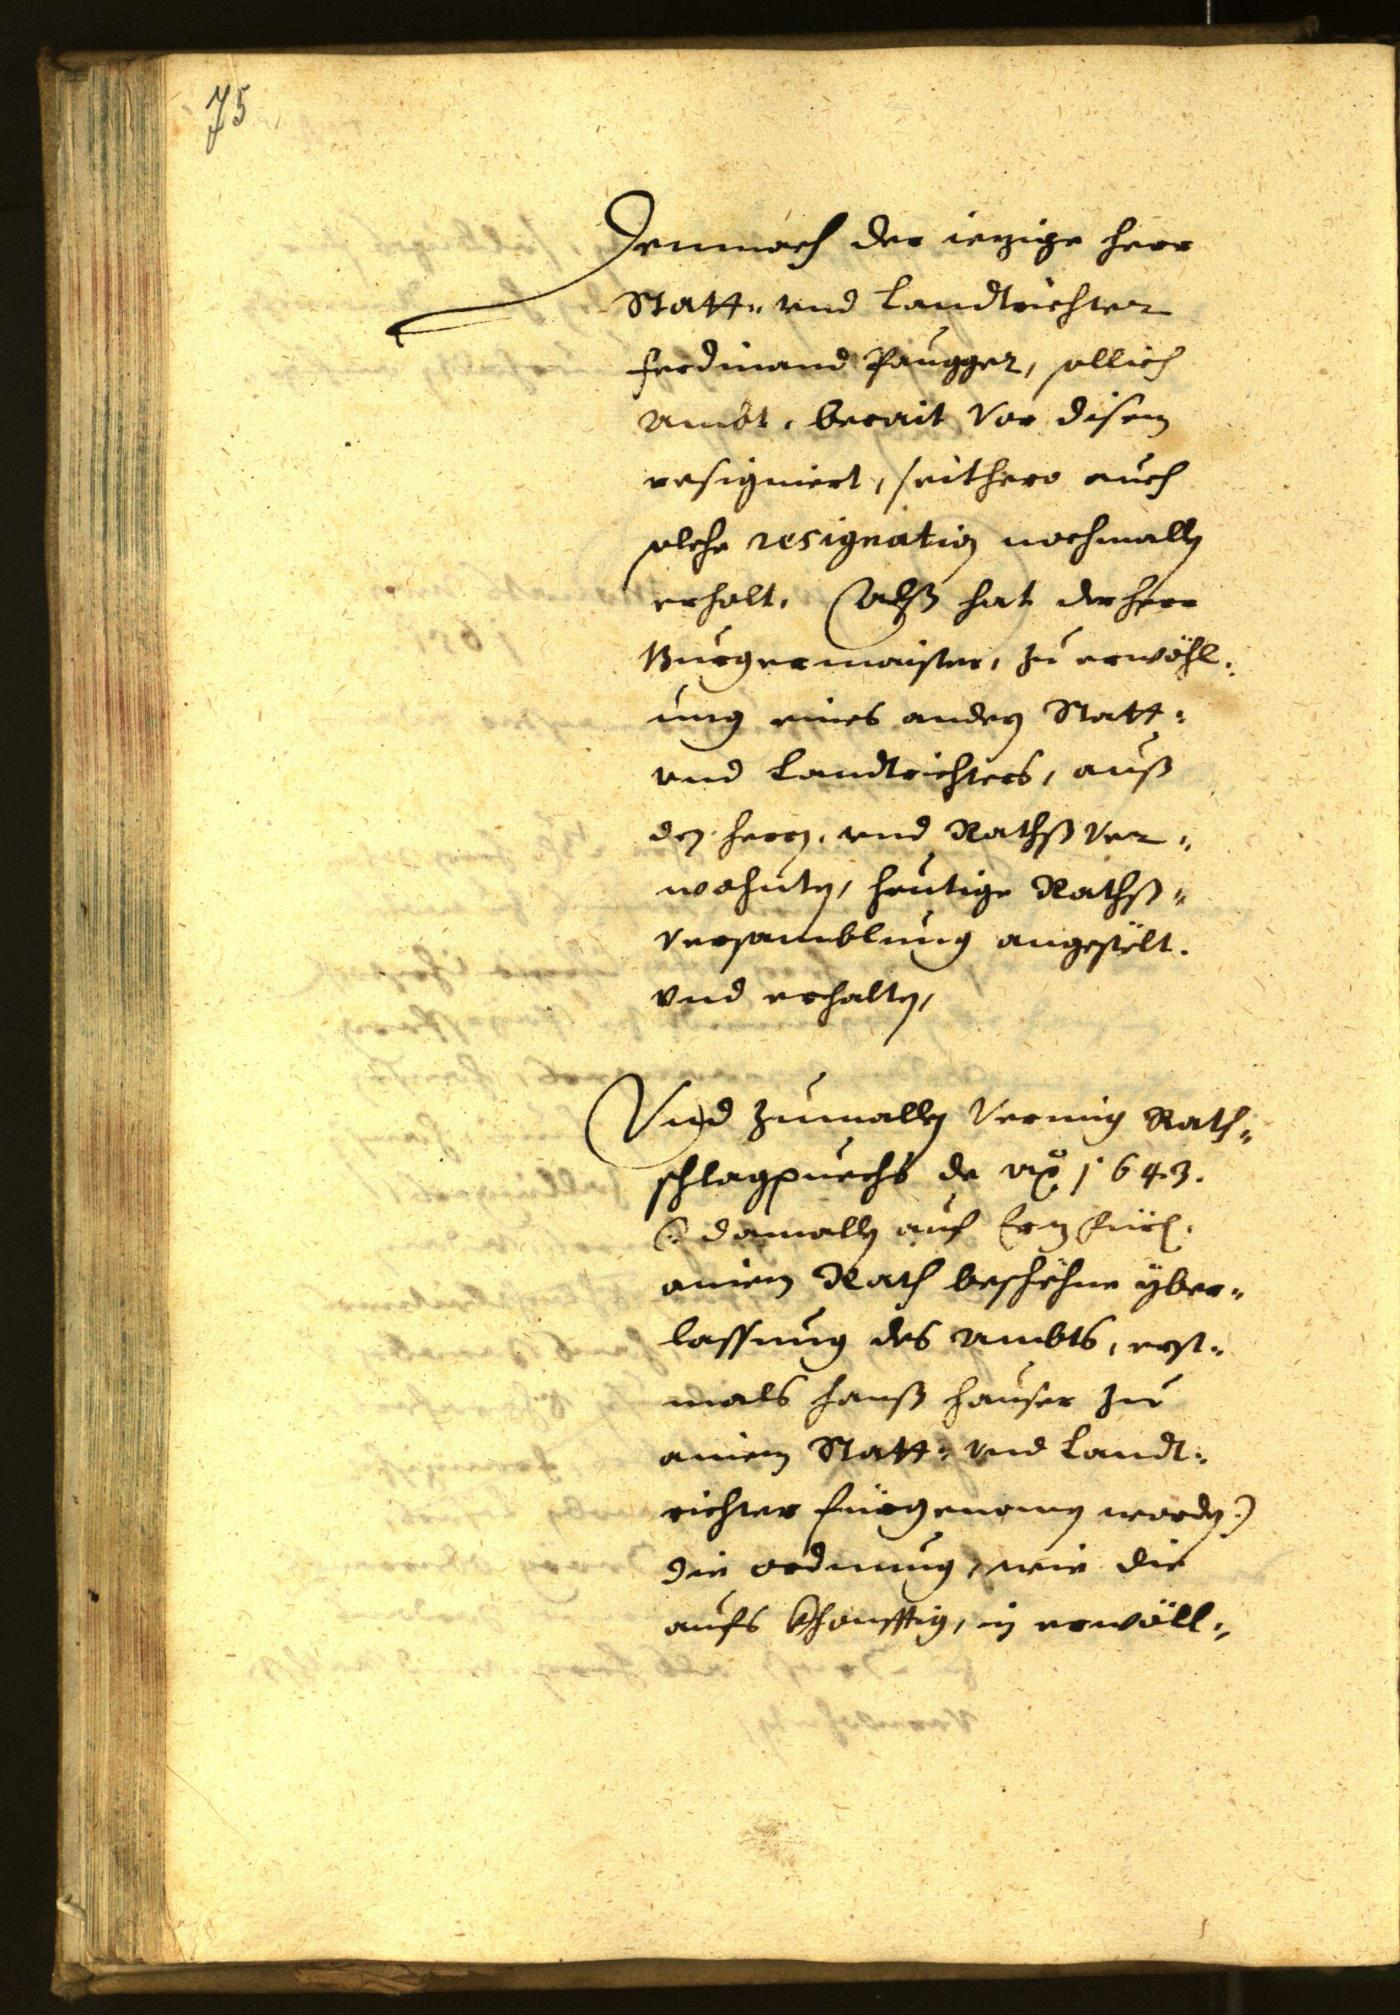 75
Demnach der iezige herr
Statt- vnd Landtrichter
Ferdinand Paugger, sollich
Ambt, berait vor disem
resigniert, seithero auch
solche resignation nochmalln
erholt, Alß hat der herr
Burgermaister, zu erwöhl-
ung eines andern Statt-
vnd Landtrichters, auß
den herrn, vnd Rathß Ver-
wohnten, heutige Rathß-
versamblung angestölt.
vnd erhalten,
Vnd Zumalln Vermig Rath-
schlagpuechs de Aõ 1643.
(: damalln auf
ainem Rath beschehne yber-
lassung des Ambts, erst-
mals Hanß Hauser zu
ainem Statt- vnd Landt-
richter fürgenomen worden:)
die ordnung, wie die
aufs Khonfftig, in erwöll-